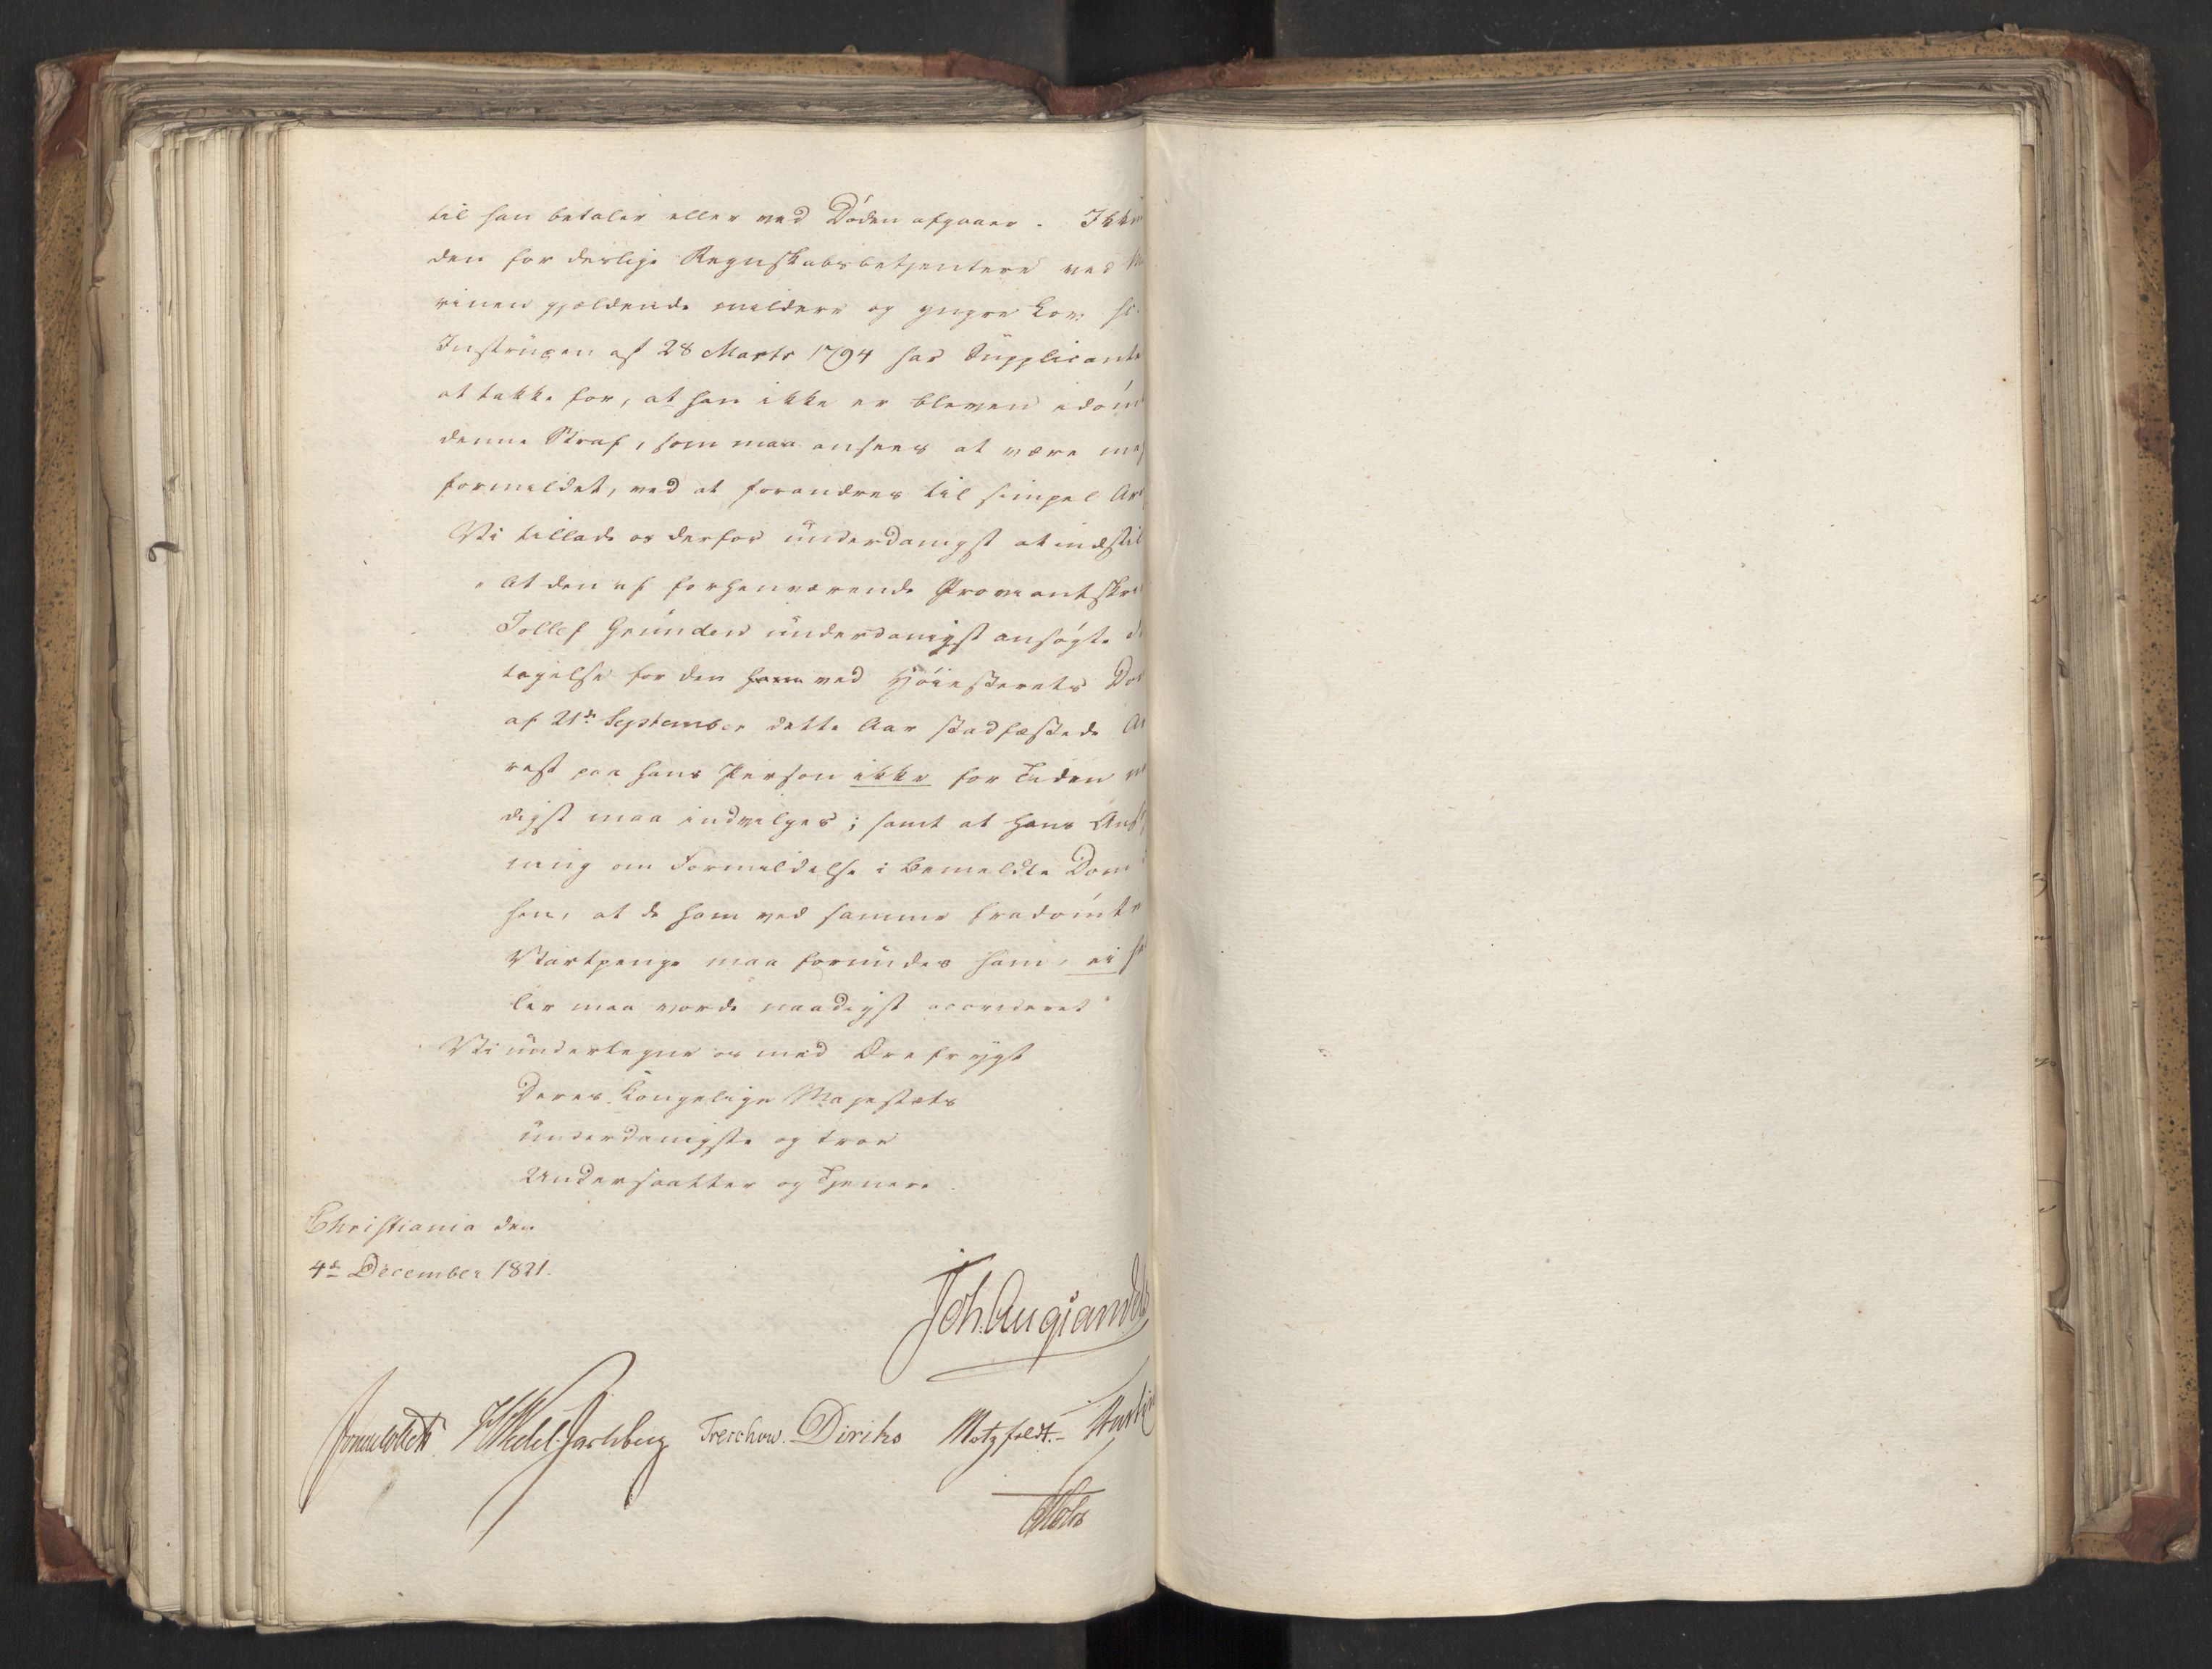 til han betaler eller ved Døden afgaaer. Ikk
den for deslige Regnskabsbetjentere ved
rinen gjældende mildere og yngre Lov
Instruxen af 28 Marts 1794 har Supplicant
at takke for, at han ikke er bleven idøm
denne Straf, som maa ansees at være
formildet, ved at forandres til simpel Ar
Vi tillade os derfor underdanigst at indstil
"At den af forhenværende Proviantskri
Tollef Gründen underdanigst ansøgte
tagelse for den ham ved Høiesterets Do
af 21de September dette Aar stadfæstede Ar
rest paa hans Person ikke for Tiden
digst maa indvilges; samt at hans Ansø
ning om Formildelse i bemeldte Dom
hen, at de ham ved samme fradømte
Vartpenge maa forundes ham, ei
ler maa vorde naadigst accorderet"
Vi undertegne os med Ærefrygt
Deres Kongelige Majestæts
underdanigste og troe
Undersaatter og Tjenere.
Christiania den
4de December 1821.
Joh. Aug: Sandels
Jonas Collett. HWedel-Jarlsberg Treschow. Diriks Motzfeldt.
Holst